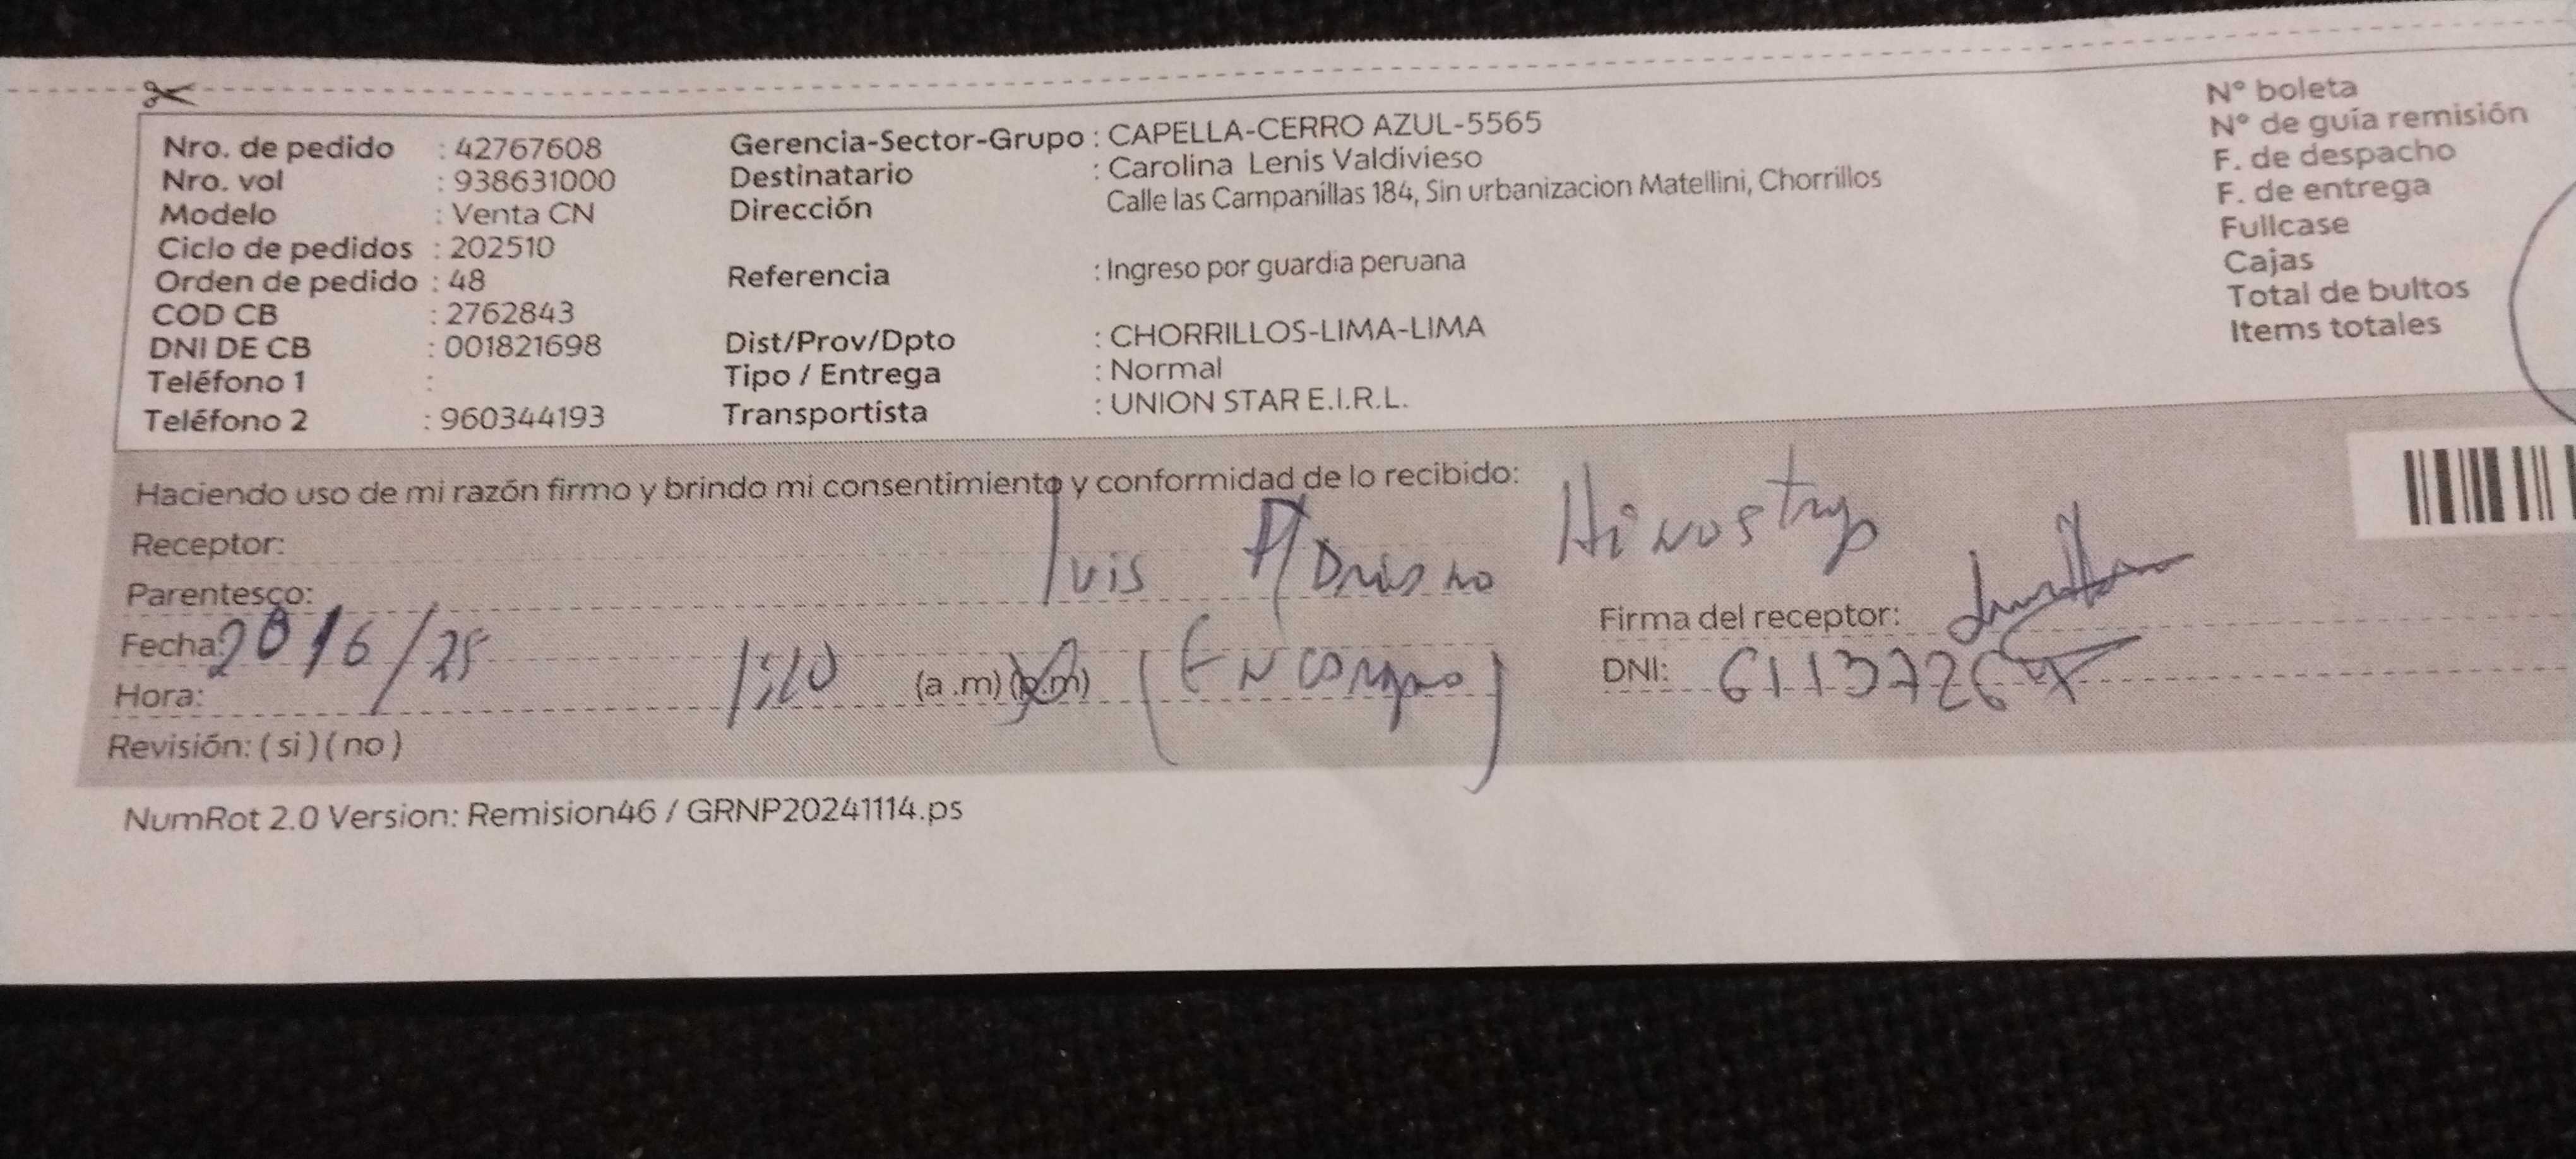 Nro. de pedido : 42767608
Nro. vol : 938631000
Modelo : Venta CN
Ciclo de pedidos : 202510
Orden de pedido : 48
COD CB : 2762843
DNI DE CB : 001821698
Teléfono 1 :
Teléfono 2 : 960344193
Gerencia-Sector-Grupo : CAPELLA-CERRO AZUL-5565
Destinatario : Carolina Lenis Valdivieso
Dirección Calle las Campanillas 184, Sin urbanizacion Matellini, Chorrillos
Referencia : Ingreso por guardia peruana
Dist/Prov/Dpto : CHORRILLOS-LIMA-LIMA
Tipo / Entrega : Normal
Transportista : UNION STAR E.I.R.L.
N° boleta
N° de guía remisión
F. de despacho
F. de entrega
Fullcase
Cajas
Total de bultos
Items totales
Haciendo uso de mi razón firmo y brindo mi consentimiento y conformidad de lo recibido:
Receptor: luis
Parentesco:
Fecha: 20/6/25
Hora: (a.m) (p.m)
Revisión: ( si ) ( no )
Firma del receptor:
DNI:
NumRot 2.0 Version: Remision46 / GRNP20241114.ps